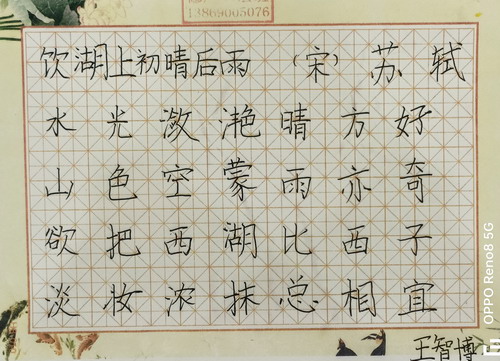 13869005076
饮湖上初晴后雨 （宋） 苏轼
水光潋滟晴方好
山色空蒙雨亦奇
欲把西湖比西子
淡妆浓抹总相宜
王智博
OPPO Reno8 5G